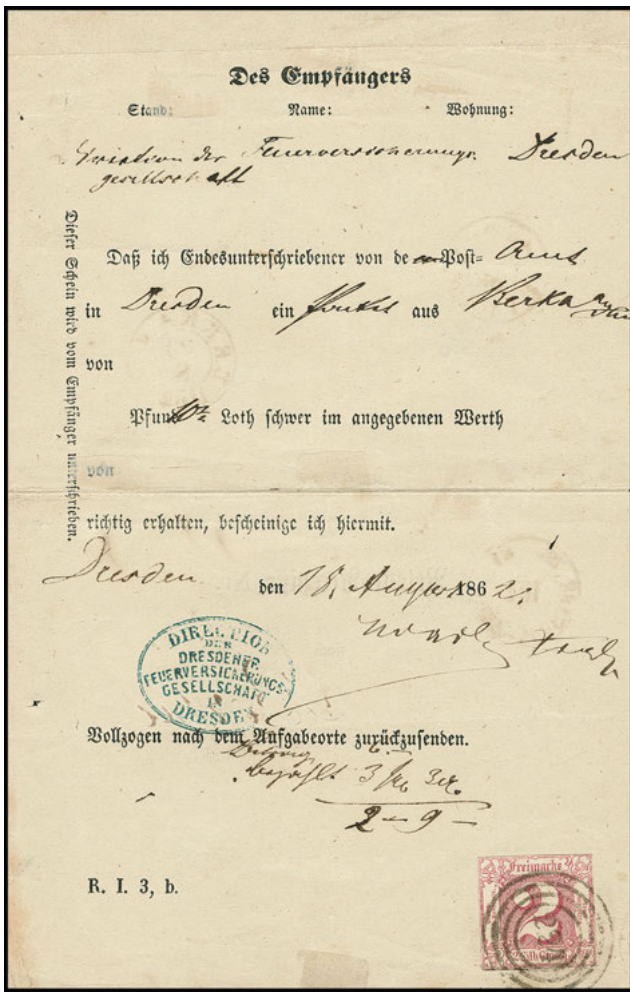 Des Empfängers
Stand: Name: Wohnung:
Direction der Feuerversicherungs- Dresden
gesellschaft
Dieser Schein wird vom Empfänger unterschrieben.
Daß ich Endesunterschriebener von de Post= Amt
in Dresden ein Packet aus Berka
von
Pfund Loth schwer im angegebenen Werth
von
richtig erhalten, bescheinige ich hiermit.
Dresden den 18. August 1862.
DIRECTION
DER
DRESDENER
FEUERVERSICKERUNGS-
GESELLSCHAFT
IN
DRESDEN
Vollzogen nach dem Aufgabeorte zurückzusenden.
bezahlt 3 3
2 - 9 -
R. I. 3, b.
Freimarke
2